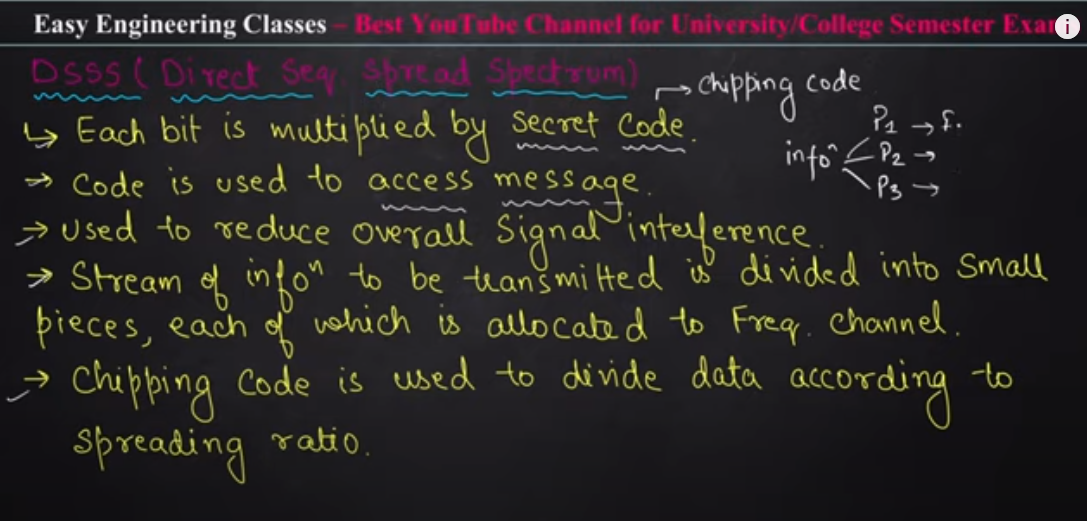 Easy Engineering Classes – Best YouTube Channel for University/College Semester Exam
DSSS (Direct Seq. Spread Spectrum)
→ chipping code
↳ Each bit is multiplied by secret code.
infoⁿ P1 → f.
P2 →
P3 →
→ Code is used to access message.
→ Used to reduce overall signal interference.
→ Stream of infoⁿ to be transmitted is divided into small
pieces, each of which is allocated to Freq. channel.
→ Chipping Code is used to divide data according to
spreading ratio.